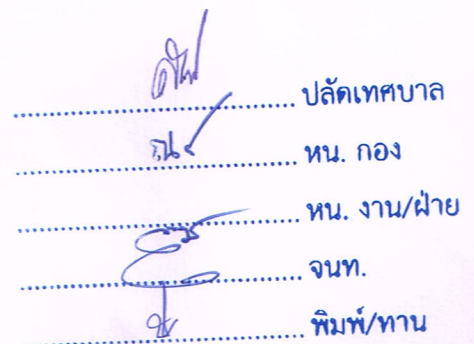 .......................................... ปลัดเทศบาล
.......................................... หน. กอง
.......................................... หน. งาน/ฝ่าย
.......................................... จนท.
.......................................... พิมพ์/ทาน